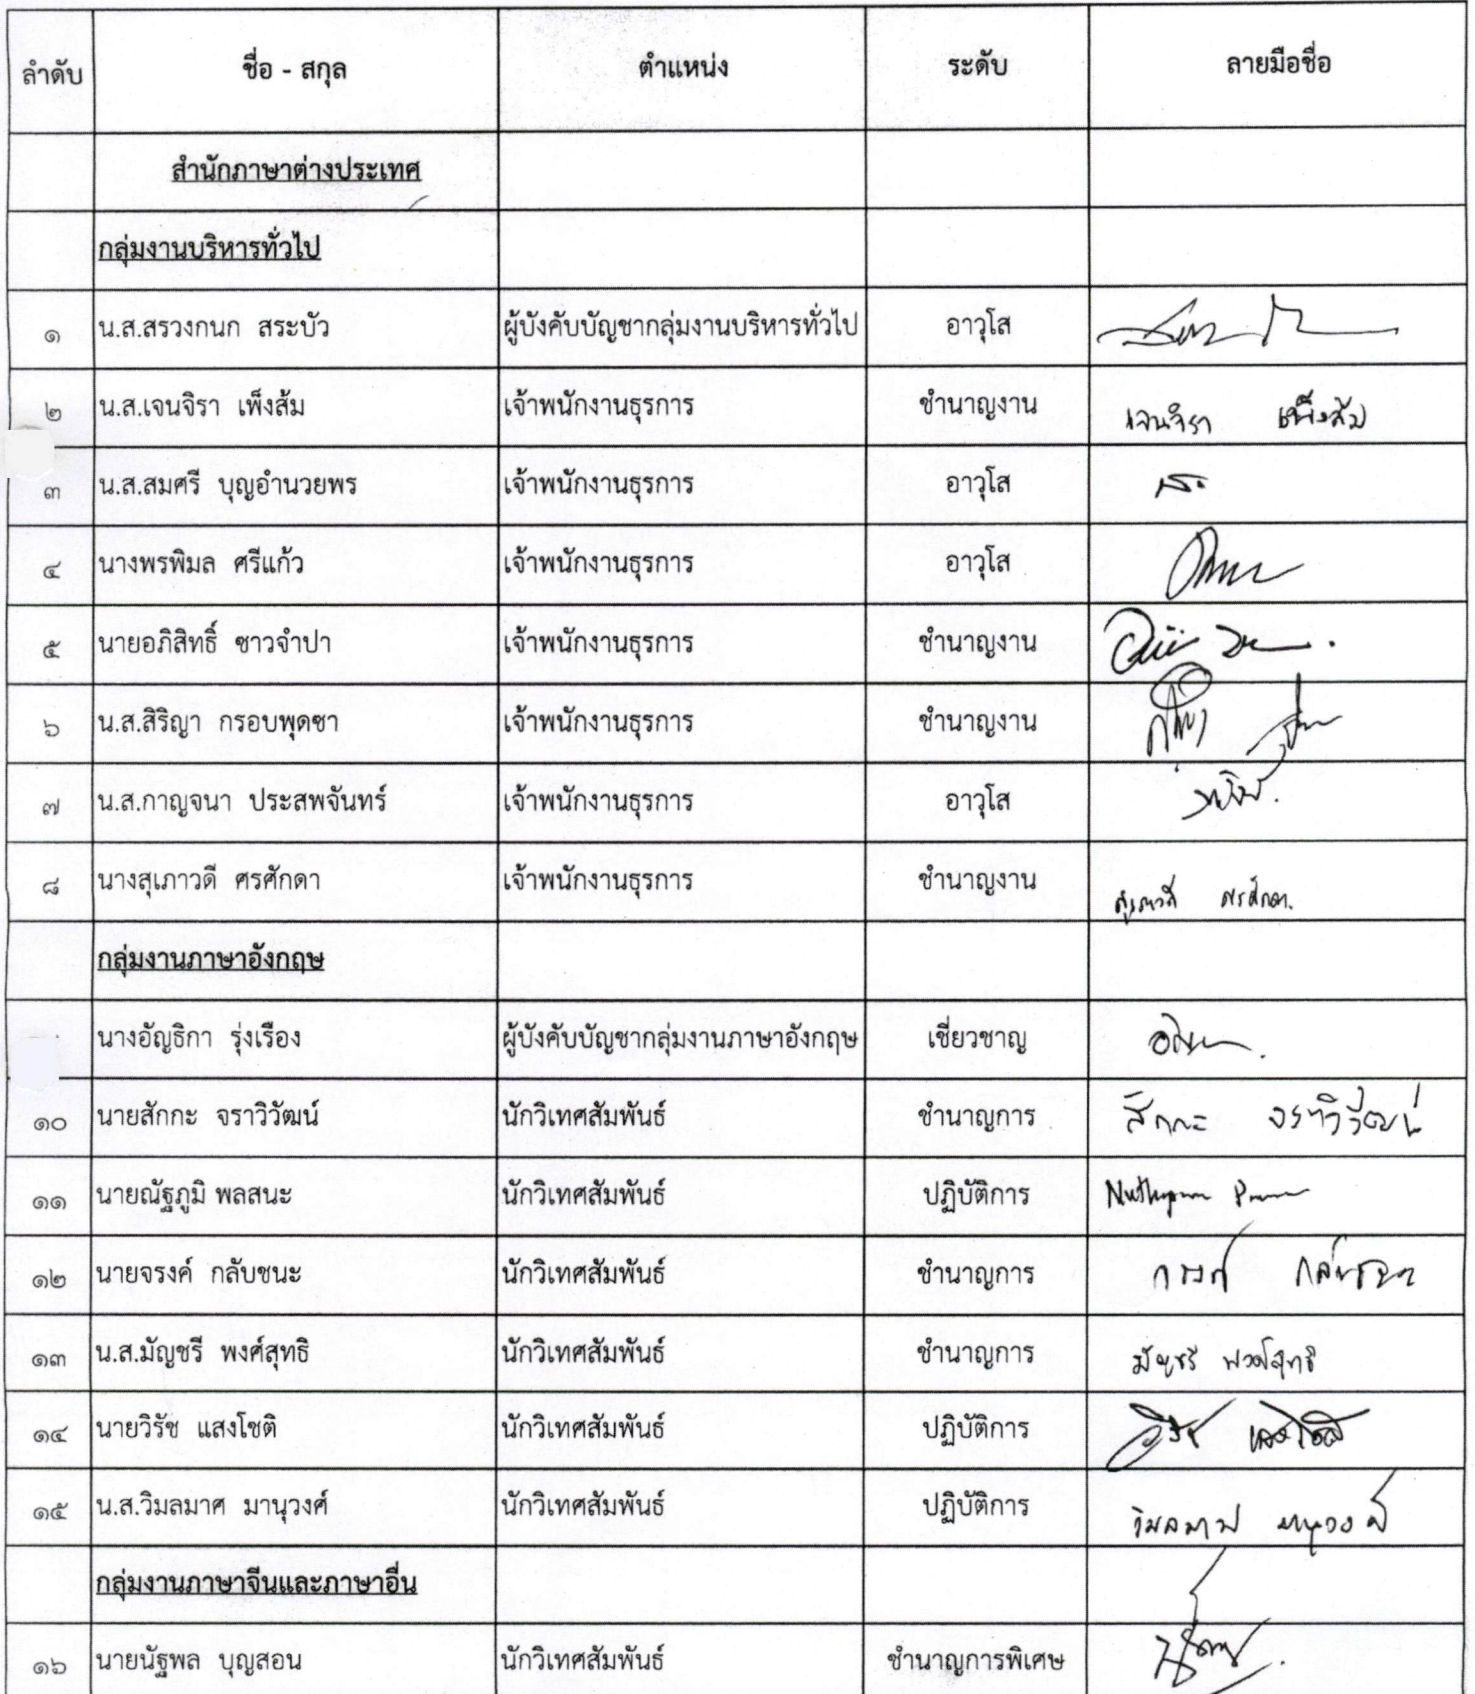 ลำดับ ชื่อ - สกุล ตำแหน่ง ระดับ ลายมือชื่อ
สำนักภาษาต่างประเทศ
กลุ่มงานบริหารทั่วไป
๑ น.ส.สรวงกนก สระบัว ผู้บังคับบัญชากลุ่มงานบริหารทั่วไป อาวุโส
๒ น.ส.เจนจิรา เพ็งส้ม เจ้าพนักงานธุรการ ชำนาญงาน เจนจิรา เพ็งส้ม
๓ น.ส.สมศรี บุญอำนวยพร เจ้าพนักงานธุรการ อาวุโส
๔ นางพรพิมล ศรีแก้ว เจ้าพนักงานธุรการ อาวุโส
๕ นายอภิสิทธิ์ ซาวจำปา เจ้าพนักงานธุรการ ชำนาญงาน
๖ น.ส.สิริญา กรอบพุดซา เจ้าพนักงานธุรการ ชำนาญงาน
๗ น.ส.กาญจนา ประสพจันทร์ เจ้าพนักงานธุรการ อาวุโส
๘ นางสุเภาวดี ศรศักดา เจ้าพนักงานธุรการ ชำนาญงาน สุเภาวดี ศรศักดา
กลุ่มงานภาษาอังกฤษ
นางอัญธิกา รุ่งเรือง ผู้บังคับบัญชากลุ่มงานภาษาอังกฤษ เชี่ยวชาญ
๑๐ นายสักกะ จราวิวัฒน์ นักวิเทศสัมพันธ์ ชำนาญการ สักกะ จราวิวัฒน์
๑๑ นายณัฐภูมิ พลสนะ นักวิเทศสัมพันธ์ ปฏิบัติการ
๑๒ นายจรงค์ กลับชนะ นักวิเทศสัมพันธ์ ชำนาญการ
๑๓ น.ส.มัญชรี พงศ์สุทธิ นักวิเทศสัมพันธ์ ชำนาญการ มัญชรี พงศ์สุทธิ
๑๔ นายวิรัช แสงโชติ นักวิเทศสัมพันธ์ ปฏิบัติการ วิรัช แสงโชติ
๑๕ น.ส.วิมลมาศ มานุวงศ์ นักวิเทศสัมพันธ์ ปฏิบัติการ วิมลมาศ มานุวงศ์
กลุ่มงานภาษาจีนและภาษาอื่น
๑๖ นายนัฐพล บุญสอน นักวิเทศสัมพันธ์ ชำนาญการพิเศษ